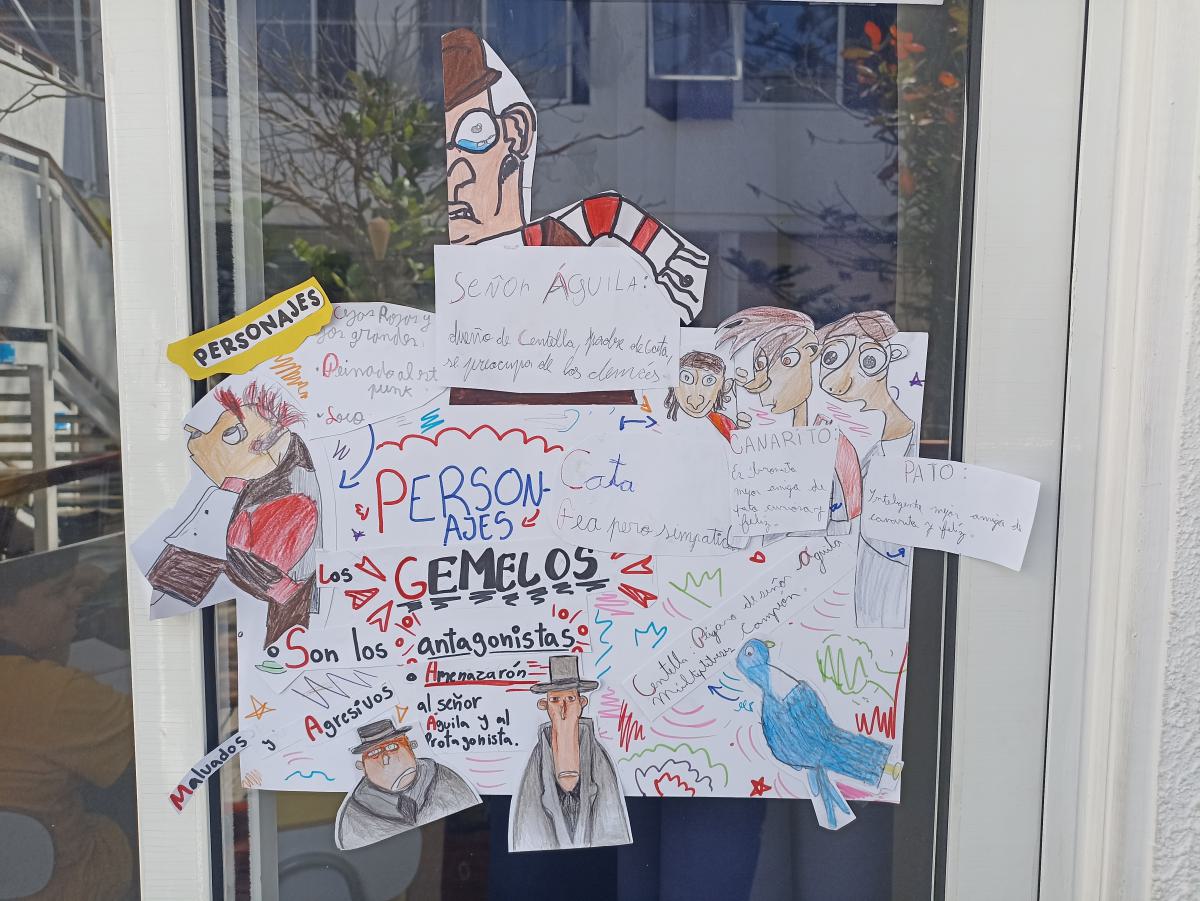 SEÑOR ÁGUILA:
dueño de Centella, padre de Cata,
se preocupa de los demces
PERSONAJES
Cejas Rojas y
ojos grandes.
• Peinado al est
punk
• Loco
PERSON-
AJES
Cata
Fea pero simpatic
CANARITO:
mejor amigo de
cata curiosa y
feliz.
PATO:
Inteligente mejor amigo de
canarito y feliz.
Los GEMELOS
• Son los antagonistas
• Amenazarón
al señor
Aguila y al
Protagonista.
Malvados y Agresivos
Centella: Pájaro de señor Águila
Campión.